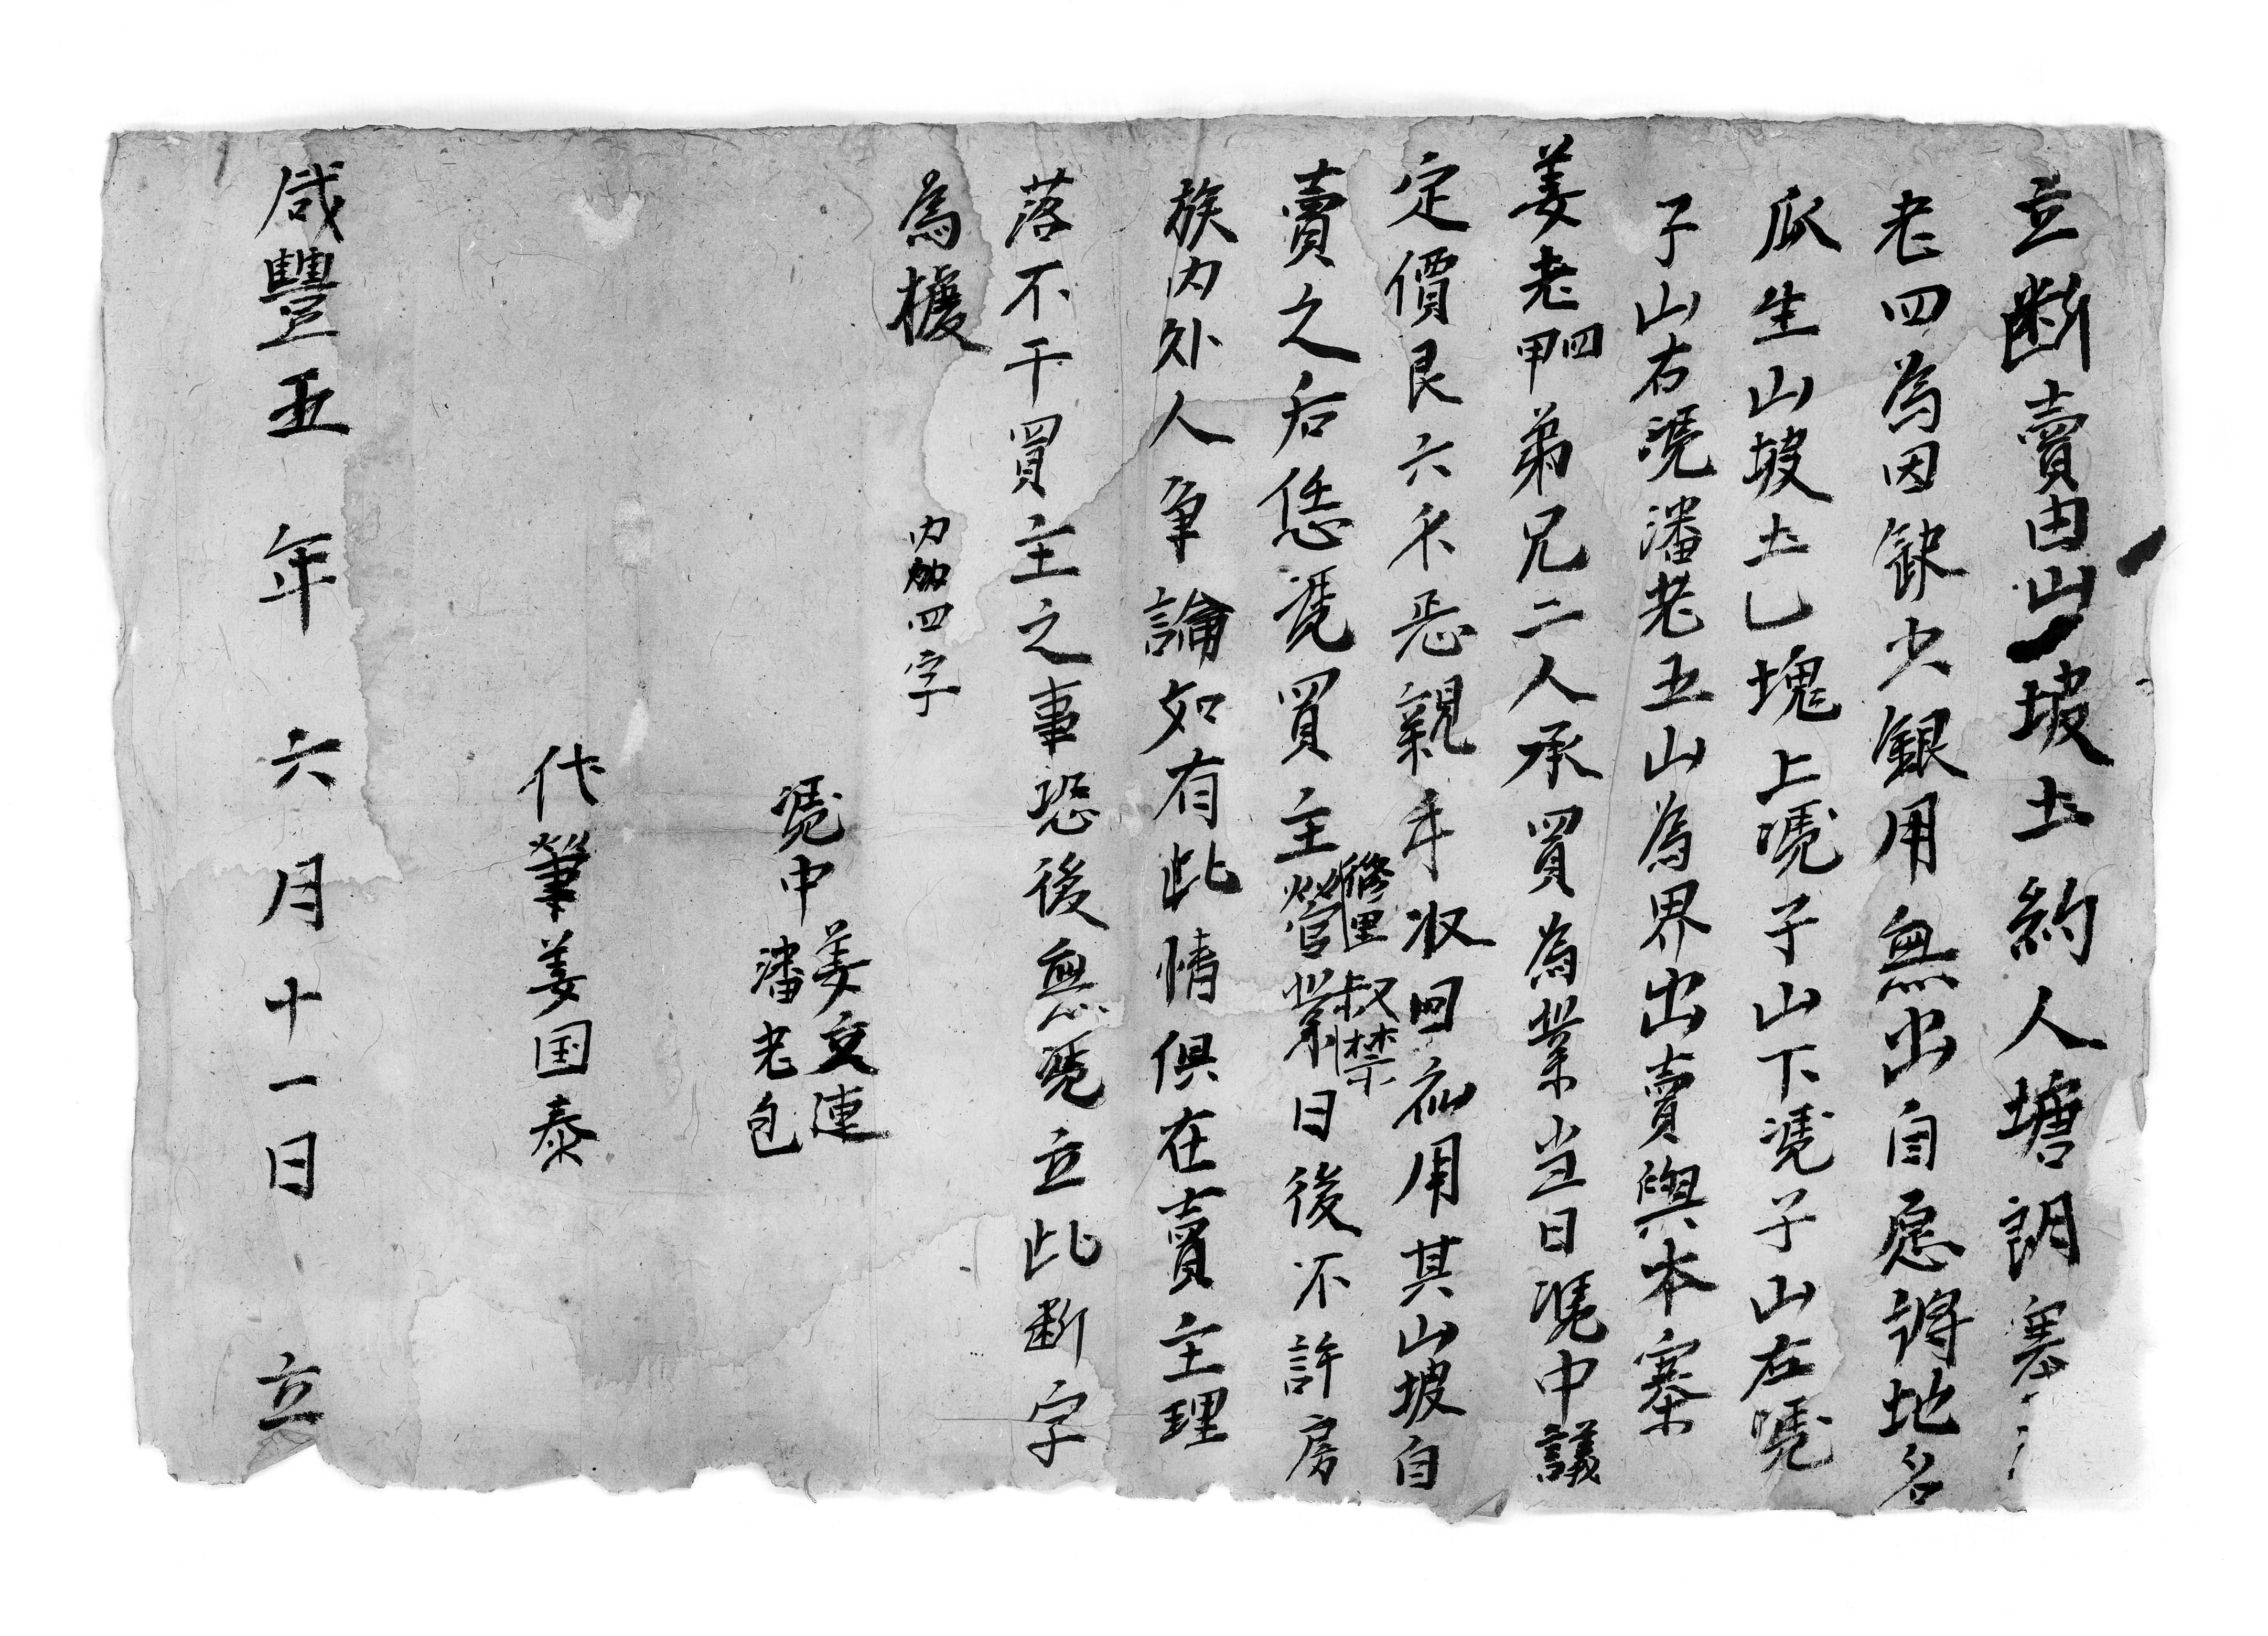 立断賣由山坡土約人塘調寨
老四為因缺少銀用無出自愿將地名
瓜生山坡土乚塊上凴子山下凴子山左凴
子山右凴潘老五山為界出賣與本寨
姜老甲四弟兄二人承買為業当日凴中議
定價艮六禾悉親手收回衪用其山坡自
賣之后恁凴買主修理叔禁營業日後不許房
族内外人争論如有此情俱在賣主理
落不干買主之事恐後無凴立此断字
為㨿
内加四字
凴中姜文連
潘老包
代筆姜国泰
咸豐五年六月十一日立